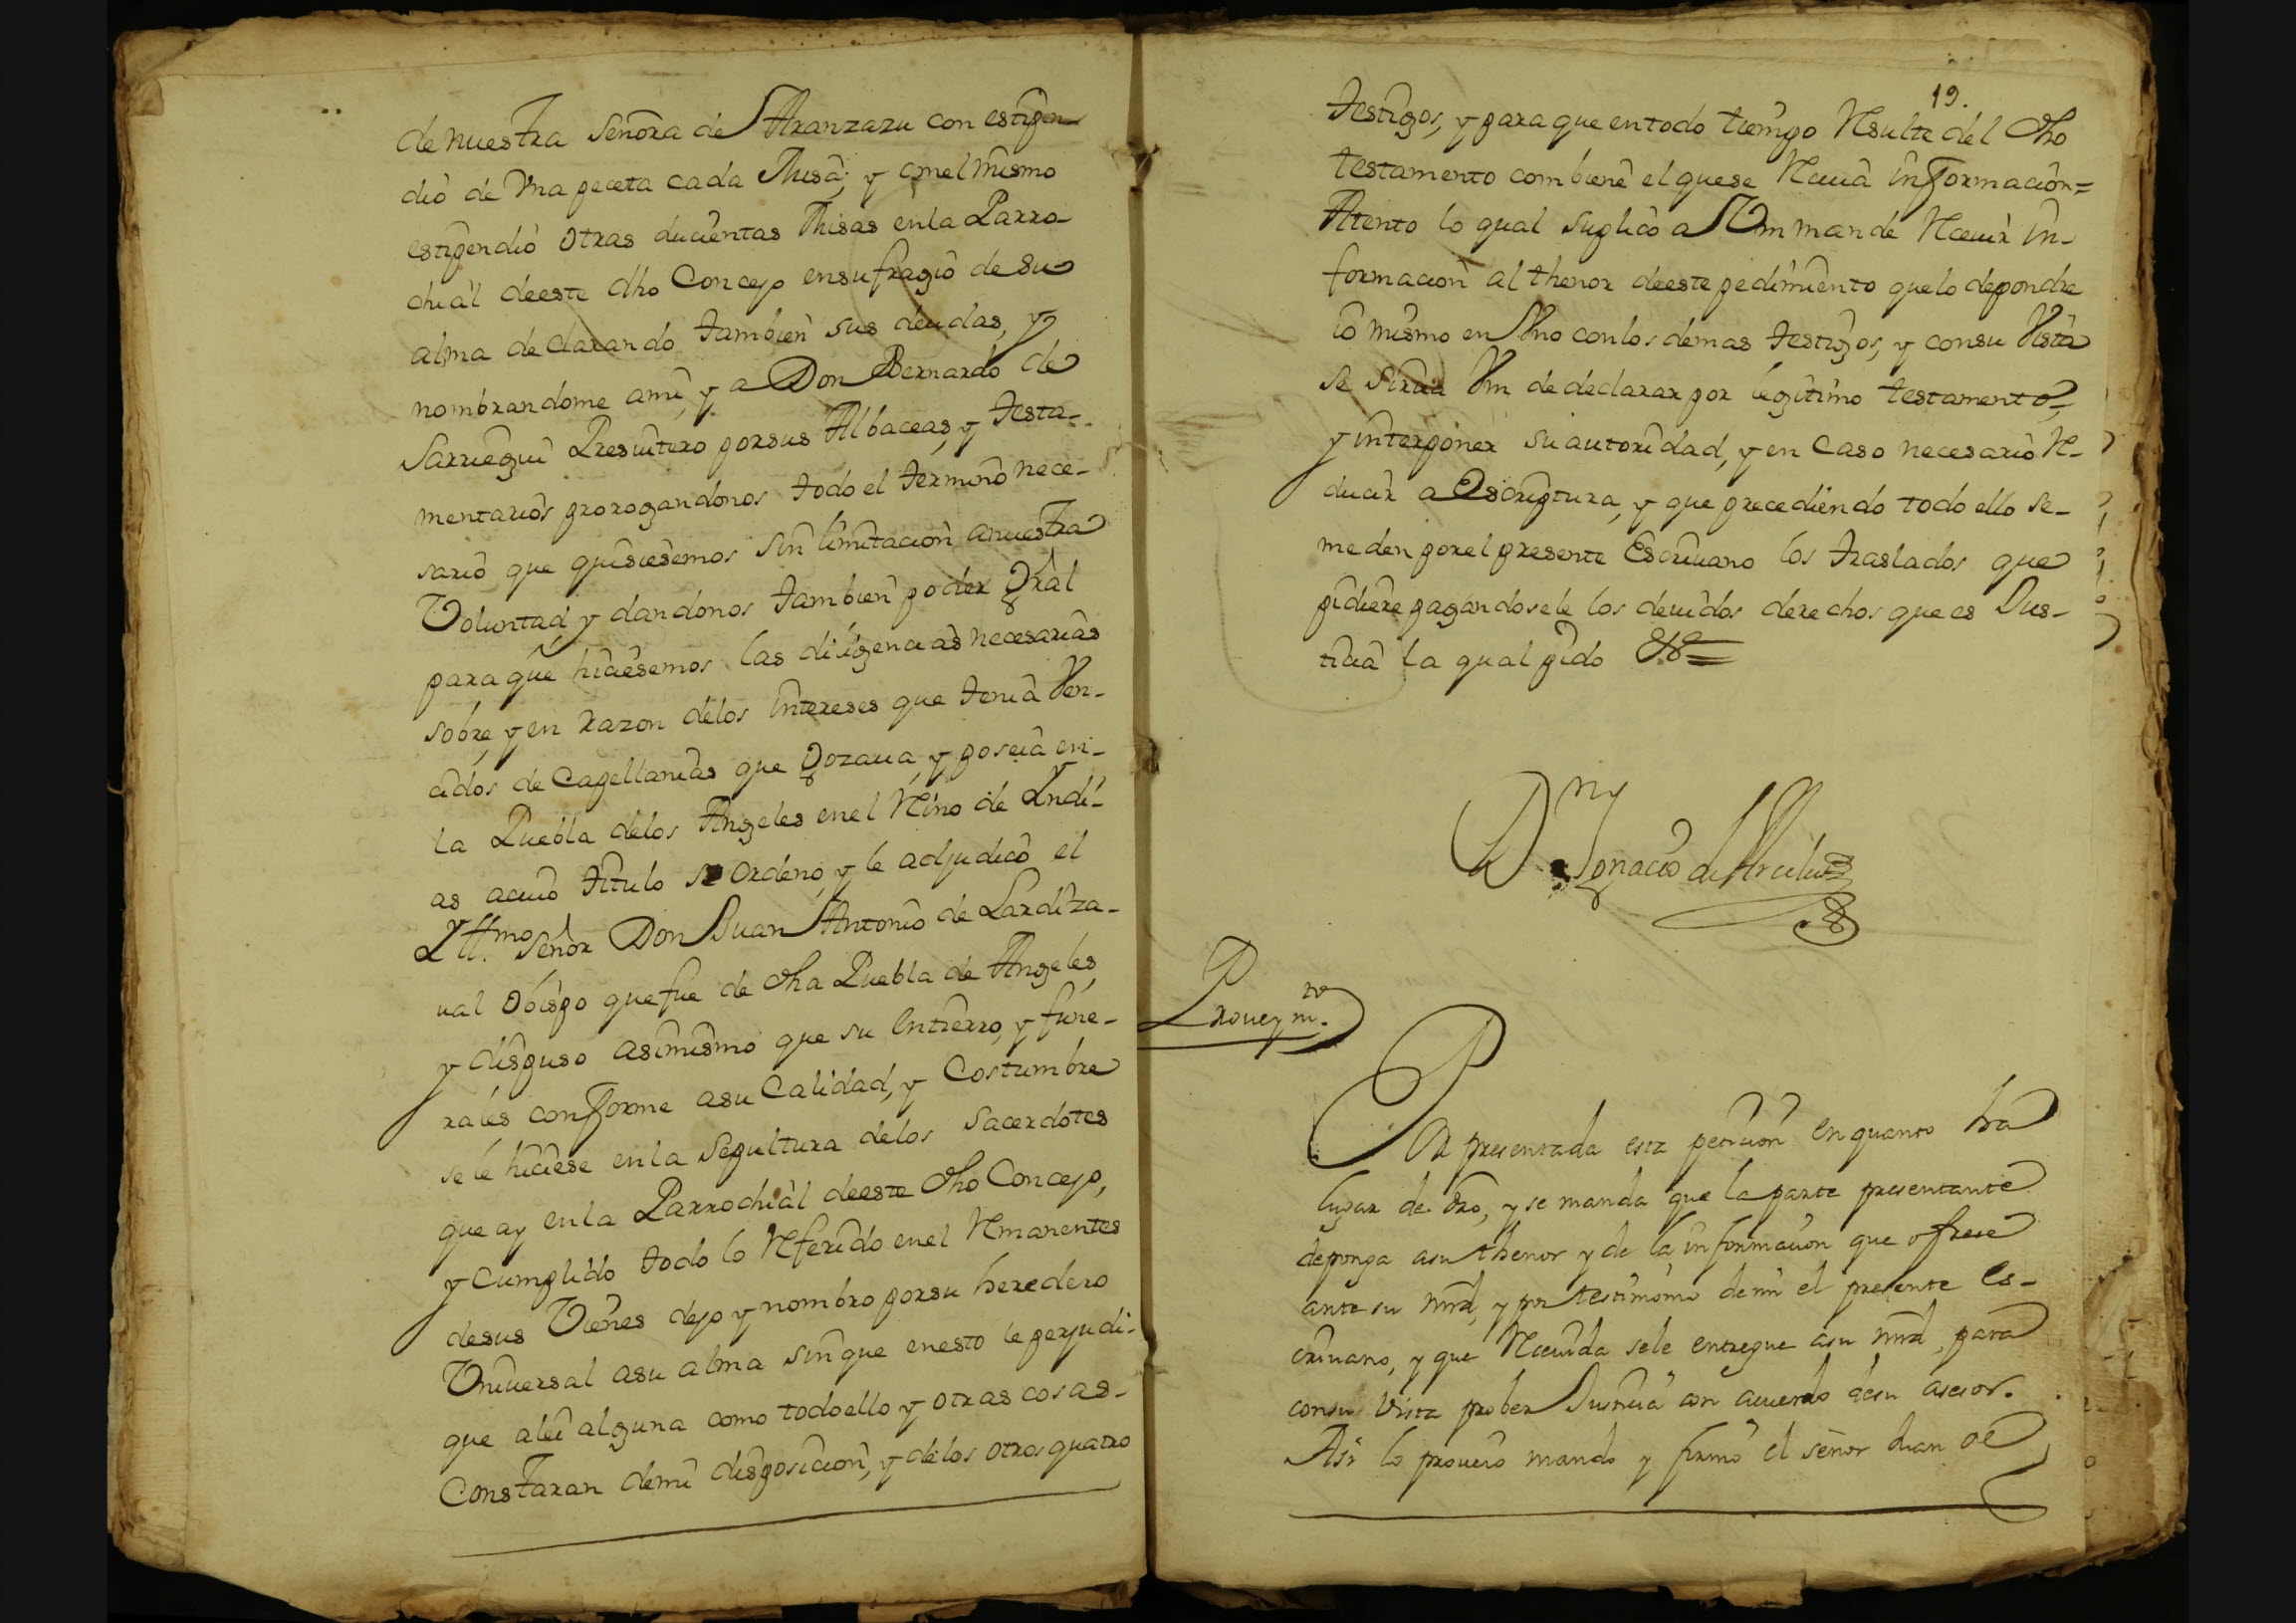 de nuestra Señora de Aranzazu con estipen-
dio de Una peceta cada Misa; y con el mismo
estipendio otras ducientas Misas en la Parro-
chial de este dho Concejo en sufragio de su
alma declarando tambien sus deudas, y
nombrandome ami, y a Don Bernardo de
Sarriegui Presvitero por sus Albaceas, y Testa-
mentarios prorogandonos todo el termino nece-
sario que quisiesemos sin limitacion a nuestra
Voluntad, y dandonos tambien poder Gral
para que hiciesemos las diligencias necesarias
sobre, y en razon delos intereses que tenia Ven-
cidos de Capellanias que Gozaua, y poseia en
la Puebla delos Angeles en el Rno de Yndi-
as acuio titulo se ordeno, y le adjudico el
Yllmo Señor Don Juan Antonio de Lardiza-
ual Obispo que fue de dha Puebla de Angeles,
y dispuso asimismo que su Entierro, y fune-
rales conforme asu Calidad, y Costumbre
se le hiciese en la Sepultura delos Sacerdotes
que ay en la Parrochial de este dho Concejo,
y Cumplido todo lo Referido en el Remanentes
de sus Vienes dejo y nombro por su heredero
Vniuersal asu alma sin que en esto le perjudi-
que alei alguna como todo ello y otras cosas-
Constaran de mi disposicion, y delos otros quatro
19.
testigos, y para que en todo tiempo Resulte del dho
testamento combiene el que se Reciua informacion=
Atento lo qual Suplico a Vm mande Receuir in-
formacion al thenor de este pedimiento que lo depondre
io mismo en Vno con los demas testigos, y con su Vista
se sirua Vm de declarar por legitimo testamento,
y interponer su autoridad, y en Caso necesario Re-
ducir a Escriptura, y que precediendo todo ello se-
me den por el presente Escriuano los traslados que
pidiere pagandosele los deuidos derechos que es Jus-
ticia la qual pido &a
Dn Ignacio de
Proueymto
Por presentada esta peticion en quanto ha
lugar de dro, y se manda que la parte presentante
deponga asu thenor y de la informacion que ofrece
ante su mrd, y por testimonio de mi el presente Es-
criuano, y que Receuida sele entregue asu mrd, para
con su Vista prober Justicia con acuerdo de su asesor.
Asi lo proueio mando y firmo el señor Juan de